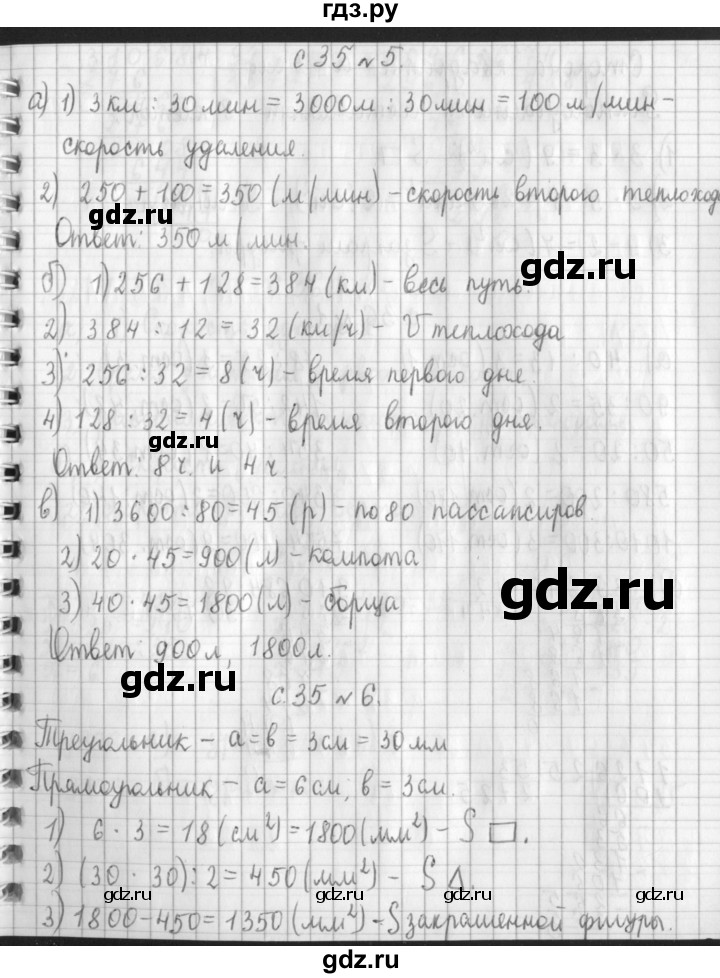 гдз.ру
с 35 № 5.
а) 1) 3 км : 30 мин = 3000 м : 30 мин = 100 м/мин –
скорость удаления.
2) 250 + 100 = 350 (м/мин) – скорость второго теплохода
Ответ: 350 м/мин.
gdz.ru
б) 1) 256 + 128 = 384 (км) – весь путь.
gdz.ru
2) 384 : 12 = 32 (км/ч) – V теплохода
3) 256 : 32 = 8 (ч) – время первого дня.
4) 128 : 32 = 4 (ч) – время второго дня.
gdz.ru
Ответ: 8 ч. и 4 ч.
в) 1) 3600 : 80 = 45 (р) – по 80 пассансиров.
2) 20 · 45 = 900 (л) – компота
gdz.ru
3) 40 · 45 = 1800 (л) – борща
Ответ: 900 л, 1800 л.
gdz.ru
с. 35 № 6.
Треугольник – a = b = 3 см = 30 мм
Прямоугольник – a = 6 см, b = 3 см.
1) 6 · 3 = 18 (см²) = 1800 (мм²) – S □.
2) (30 · 30) : 2 = 450 (мм²) – S Δ.
gdz.ru
gdz.ru
3) 1800 – 450 = 1350 (мм²) – S закрашенной фигуры.
gdz.ru